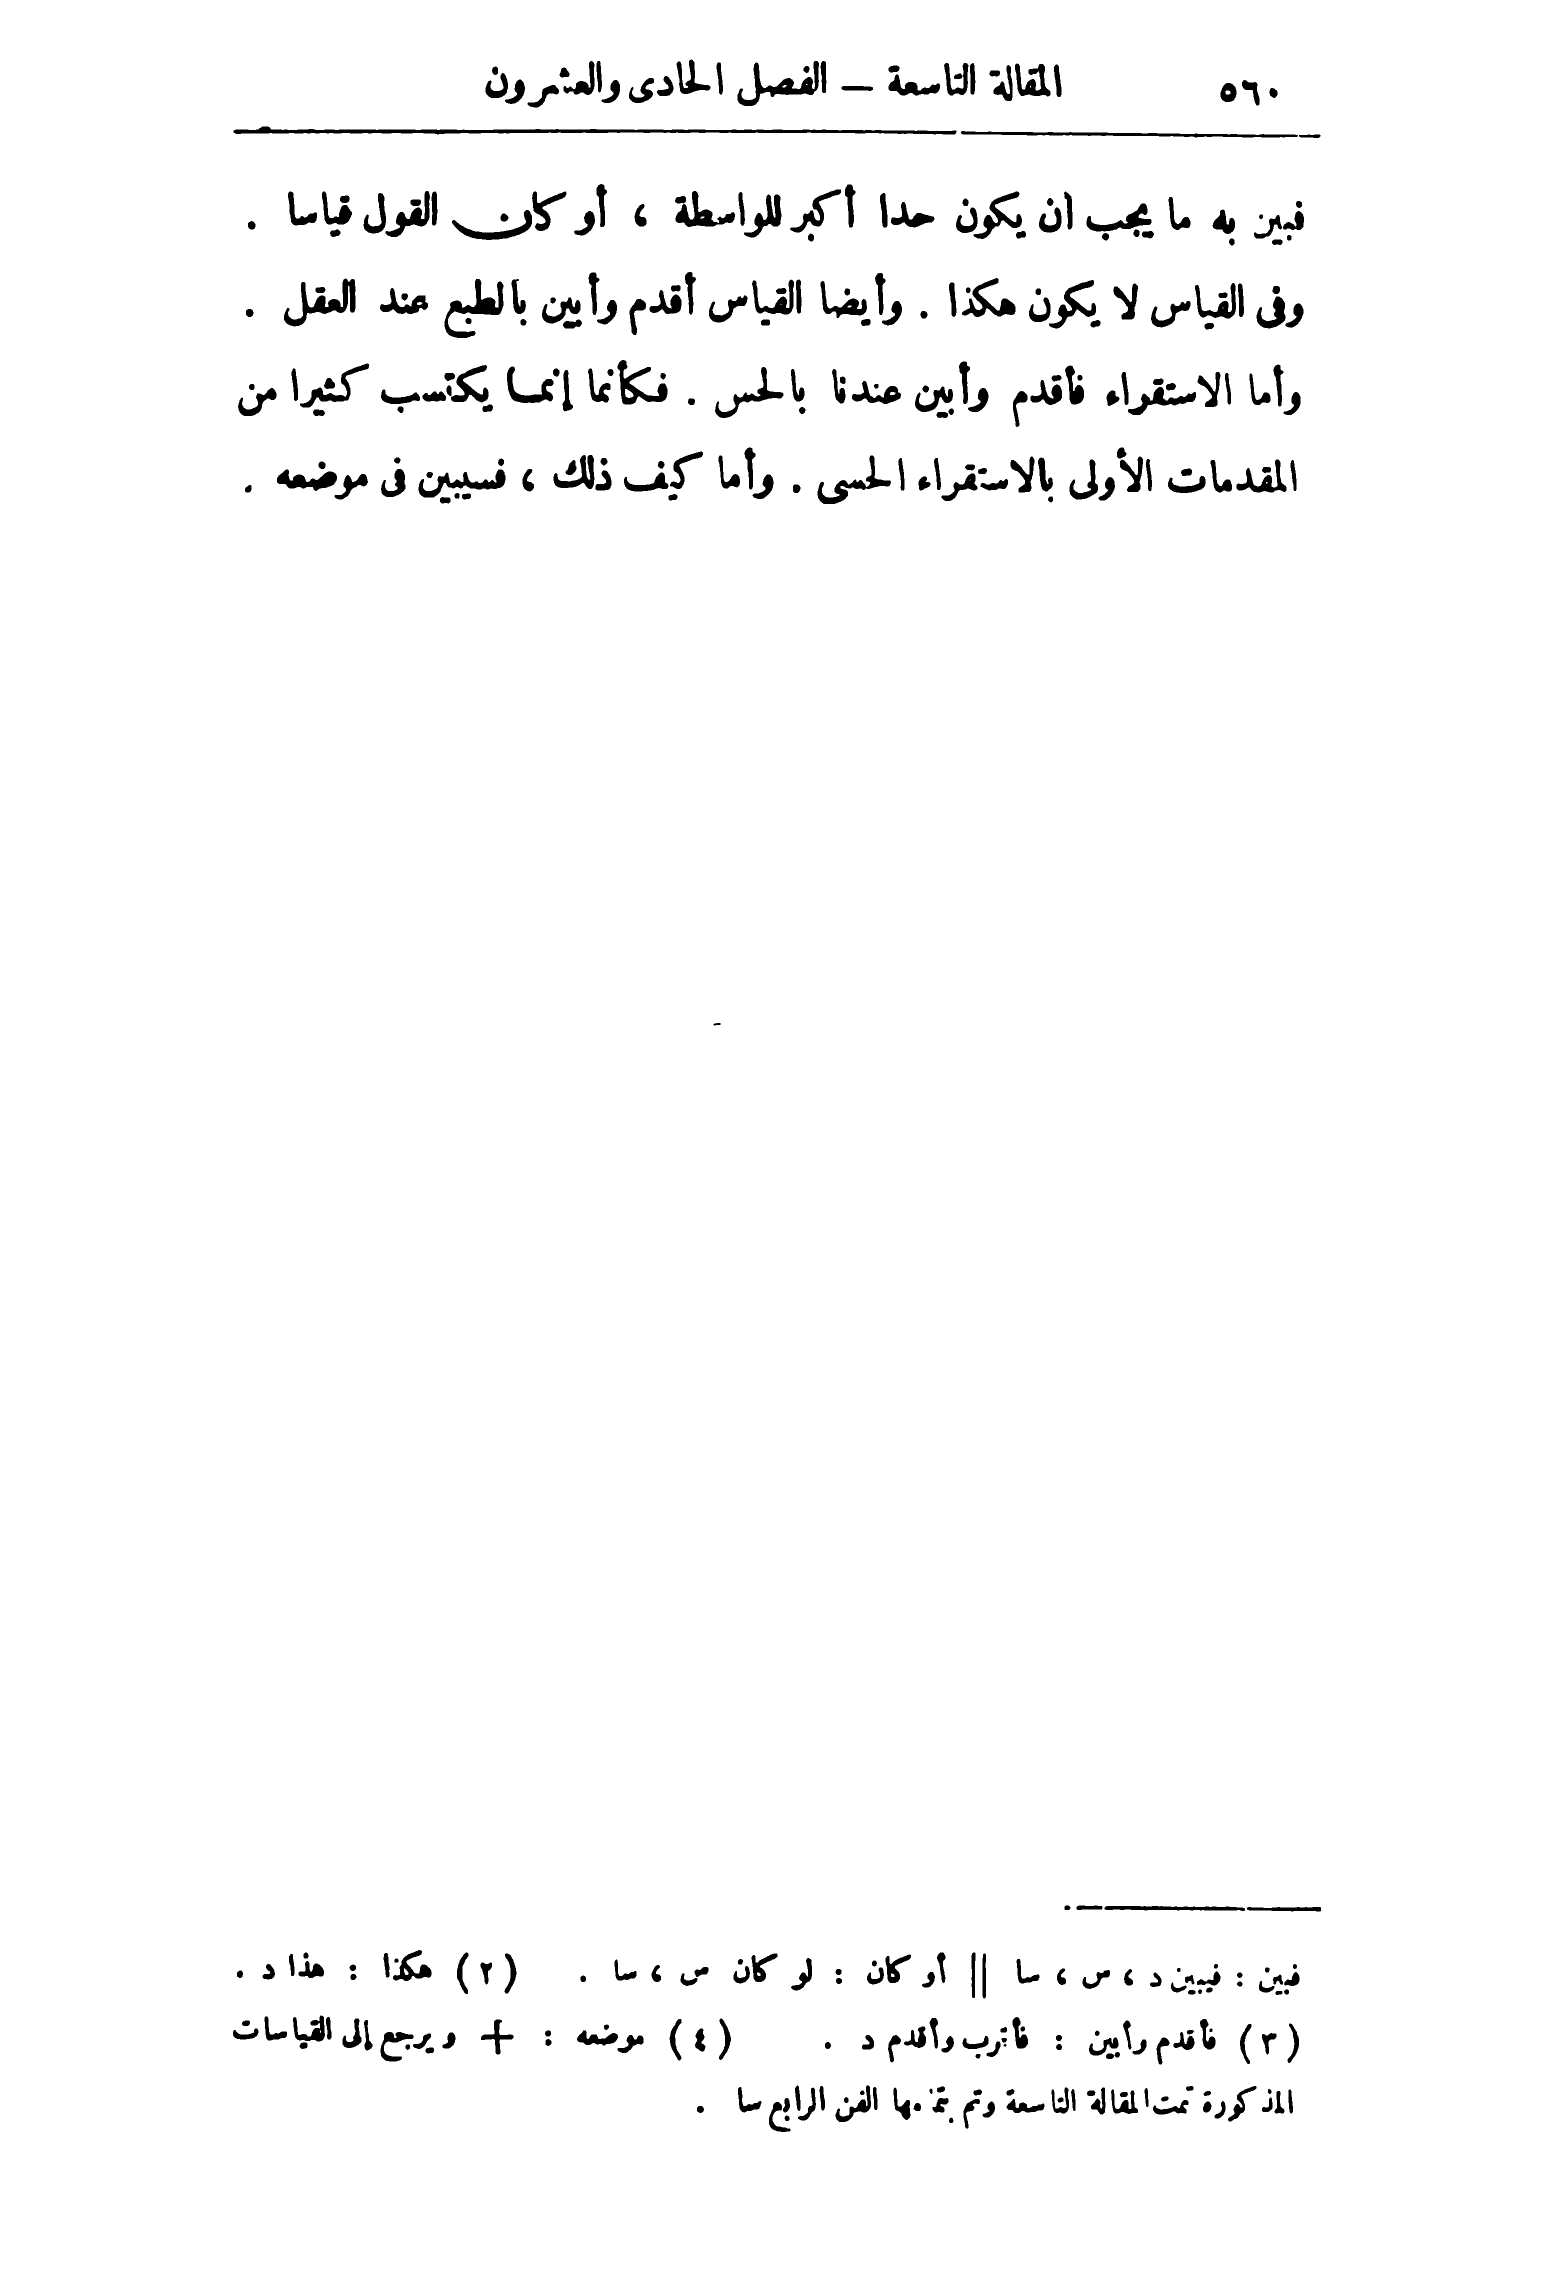 ٥٦٠ المقالة التاسعة – الفصل الحادى والعشرون
فبين به ما يجب أن يكون حدا أكبر للواسطة ، أو كان القول قياسا .
وفى القياس لا يكون هكذا . وأيضا القياس أقدم وأبين بالطبع عند العقل .
وأما الاستقراء فأقدم وأبين عندنا بالحس . فكأنما إنما يكتسب كثيرا من
المقدمات الأولى بالاستقراء الحسى . وأما كيف ذلك ، فسيبين فى موضعه .
فبين : فيبين د ، س ، سا || أو كان : لو كان س ، سا . (٢) هكذا : هذا د .
(٣) فأقدم وأبين : فأقرب وأقدم د . (٤) موضعه : + ويرجع إلى القياسات
المذكورة تمت المقالة التاسعة وتم بتمامها الفن الرابع سا .